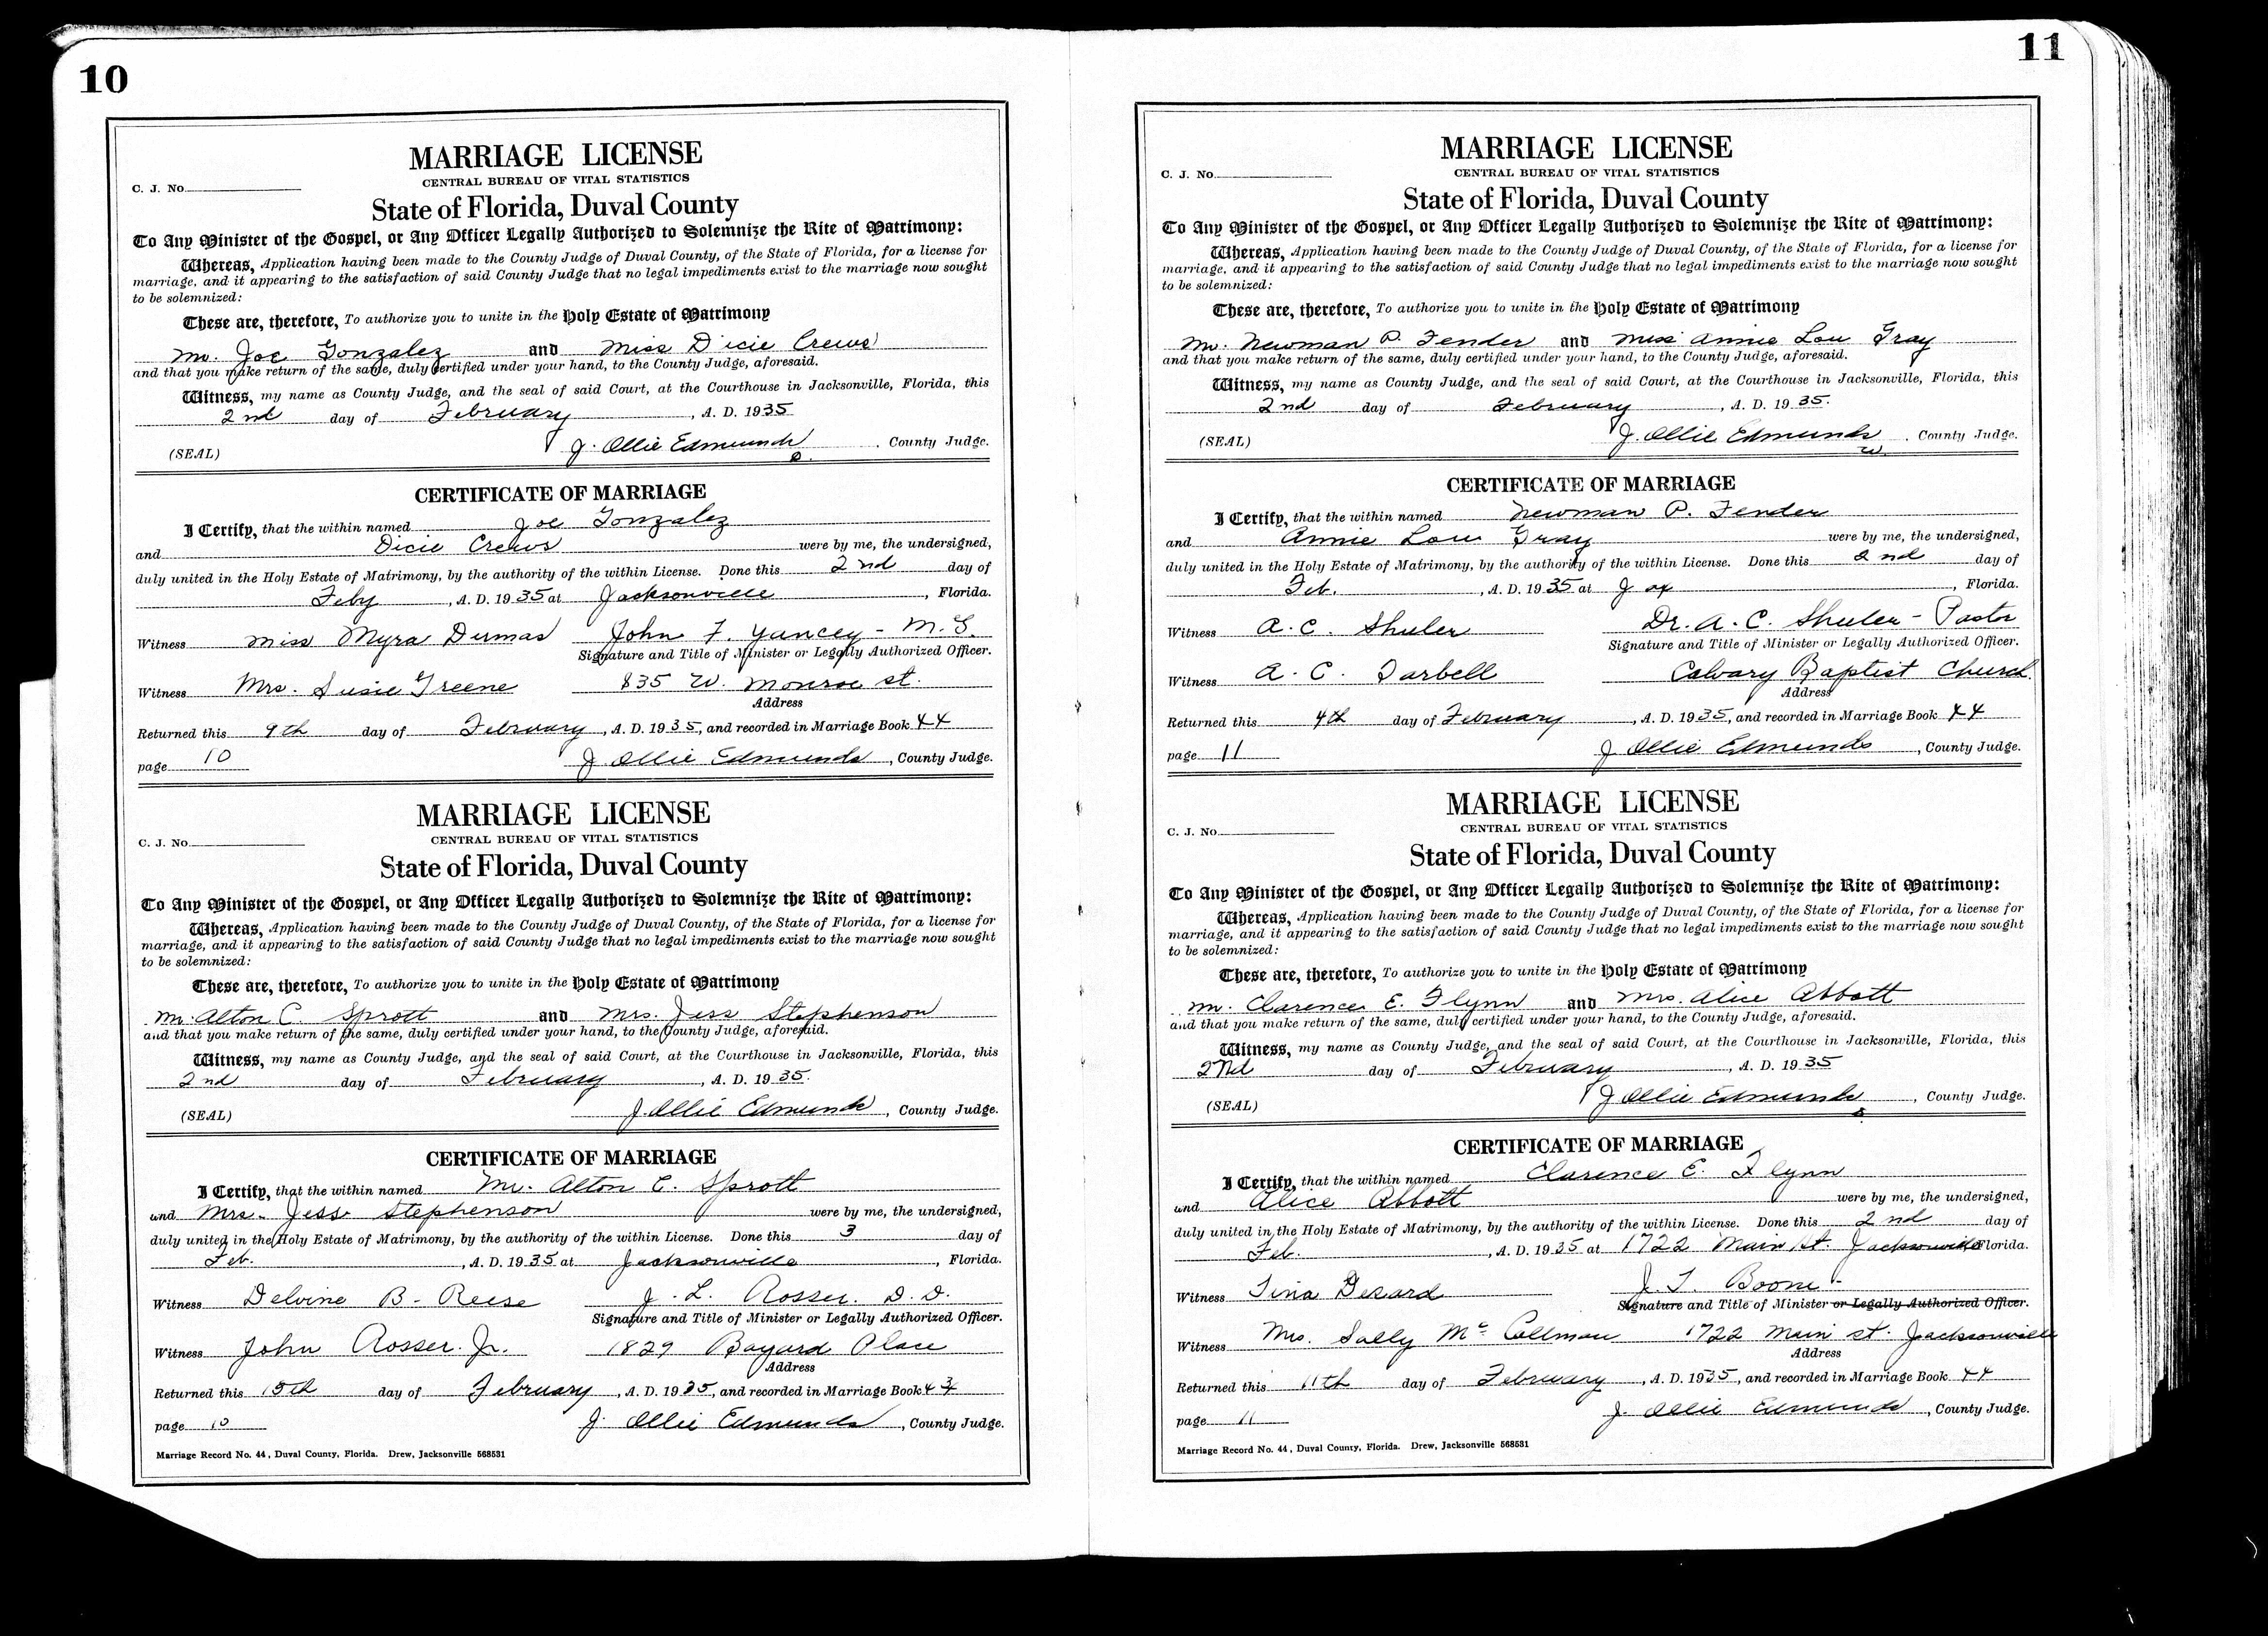 10
MARRIAGE LICENSE
C. J. No.
CENTRAL BUREAU OF VITAL STATISTICS
State of Florida, Duval County
To Any Minister of the Gospel, or Any Officer Legally Authorized to Solemnize the Rite of Matrimony:
Whereas, Application having been made to the County Judge of Duval County, of the State of Florida, for a license for
marriage, and it appearing to the satisfaction of said County Judge that no legal impediments exist to the marriage now sought
to be solemnized:
These are, therefore, To authorize you to unite in the Holy Estate of Matrimony
Mr. Joe Gonzalez and Miss Dicie Crews
and that you make return of the same, duly certified under your hand, to the County Judge, aforesaid.
Witness, my name as County Judge, and the seal of said Court, at the Courthouse in Jacksonville, Florida, this
2nd day of February, A. D. 1935
(SEAL) J. Ollie Edmunds. County Judge.
CERTIFICATE OF MARRIAGE
I Certify, that the within named Joe Gonzalez
and Dicie Crews were by me, the undersigned,
duly united in the Holy Estate of Matrimony, by the authority of the within License. Done this 2nd day of
Feby, A. D. 1935 at Jacksonville, Florida.
Witness Miss Myra Dumas John F. Yancey - M. G.
Signature and Title of Minister or Legally Authorized Officer.
Witness Mrs. Susie Greene 835 W. Monroe st.
Address
Returned this 9th day of February, A. D. 1935, and recorded in Marriage Book 44
page 10 J Ollie Edmunds, County Judge.
MARRIAGE LICENSE
C. J. No.
CENTRAL BUREAU OF VITAL STATISTICS
State of Florida, Duval County
To Any Minister of the Gospel, or Any Officer Legally Authorized to Solemnize the Rite of Matrimony:
Whereas, Application having been made to the County Judge of Duval County, of the State of Florida, for a license for
marriage, and it appearing to the satisfaction of said County Judge that no legal impediments exist to the marriage now sought
to be solemnized:
These are, therefore, To authorize you to unite in the Holy Estate of Matrimony
Mr. Alton C. Sprott and Mrs. Jess Stephenson
and that you make return of the same, duly certified under your hand, to the County Judge, aforesaid.
Witness, my name as County Judge, and the seal of said Court, at the Courthouse in Jacksonville, Florida, this
2nd day of February, A. D. 1935.
(SEAL) J. Ollie Edmunds, County Judge.
CERTIFICATE OF MARRIAGE
I Certify, that the within named Mr. Alton C. Sprott
and Mrs. Jess Stephenson were by me, the undersigned,
duly united in the Holy Estate of Matrimony, by the authority of the within License. Done this 3 day of
Feb., A. D. 1935 at Jacksonville, Florida.
Witness Delvine B. Reese J. L. Rosser. D. D.
Signature and Title of Minister or Legally Authorized Officer.
Witness John Rosser. Jr. 1829 Bayard Place
Address
Returned this 15th day of February, A. D. 1935, and recorded in Marriage Book
page 10 J. Ollie Edmunds, County Judge.
Marriage Record No. 44, Duval County, Florida. Drew, Jacksonville 568531
11
MARRIAGE LICENSE
C. J. No.
CENTRAL BUREAU OF VITAL STATISTICS
State of Florida, Duval County
To Any Minister of the Gospel, or Any Officer Legally Authorized to Solemnize the Rite of Matrimony:
Whereas, Application having been made to the County Judge of Duval County, of the State of Florida, for a license for
marriage, and it appearing to the satisfaction of said County Judge that no legal impediments exist to the marriage now sought
to be solemnized:
These are, therefore, To authorize you to unite in the Holy Estate of Matrimony
Mr. Newman P. Fender and Miss Annie Lou Gray
and that you make return of the same, duly certified under your hand, to the County Judge, aforesaid.
Witness, my name as County Judge, and the seal of said Court, at the Courthouse in Jacksonville, Florida, this
2nd day of February, A. D. 1935.
(SEAL) J. Ollie Edmunds. County Judge.
w.
CERTIFICATE OF MARRIAGE
I Certify, that the within named Newman P. Fender
and Annie Lou Gray were by me, the undersigned,
duly united in the Holy Estate of Matrimony, by the authority of the within License. Done this 2nd day of
Feb., A. D. 1935 at Jax, Florida.
Witness A. C. Shuler Dr. A. C. Shuler - Pastor
Signature and Title of Minister or Legally Authorized Officer.
Witness A. C. Tarbell Calvary Baptist Church.
Address
Returned this 4th day of February, A. D. 1935, and recorded in Marriage Book 44
page 11 J Ollie Edmunds, County Judge.
MARRIAGE LICENSE
C. J. No.
CENTRAL BUREAU OF VITAL STATISTICS
State of Florida, Duval County
To Any Minister of the Gospel, or Any Officer Legally Authorized to Solemnize the Rite of Matrimony:
Whereas, Application having been made to the County Judge of Duval County, of the State of Florida, for a license for
marriage, and it appearing to the satisfaction of said County Judge that no legal impediments exist to the marriage now sought
to be solemnized:
These are, therefore, To authorize you to unite in the Holy Estate of Matrimony
Mr. Clarence E. Flynn and Mrs. Alice Abbott
and that you make return of the same, duly certified under your hand, to the County Judge, aforesaid.
Witness, my name as County Judge, and the seal of said Court, at the Courthouse in Jacksonville, Florida, this
2nd day of February, A. D. 1935
(SEAL) J Ollie Edmunds, County Judge.
CERTIFICATE OF MARRIAGE
I Certify, that the within named Clarence E. Flynn
and Alice Abbott were by me, the undersigned,
duly united in the Holy Estate of Matrimony, by the authority of the within License. Done this 2nd day of
Feb., A. D. 1935 at 1722 Main St. Jacksonville Florida.
Witness Tina J. T. Boone -
Signature and Title of Minister or Legally Authorized Officer.
Witness Mrs. Sally 1722 Main st. Jacksonville
Address
Returned this 11th day of February, A. D. 1935, and recorded in Marriage Book 44
page 11 J. Ollie Edmunds, County Judge.
Marriage Record No. 44, Duval County, Florida. Drew, Jacksonville 568531